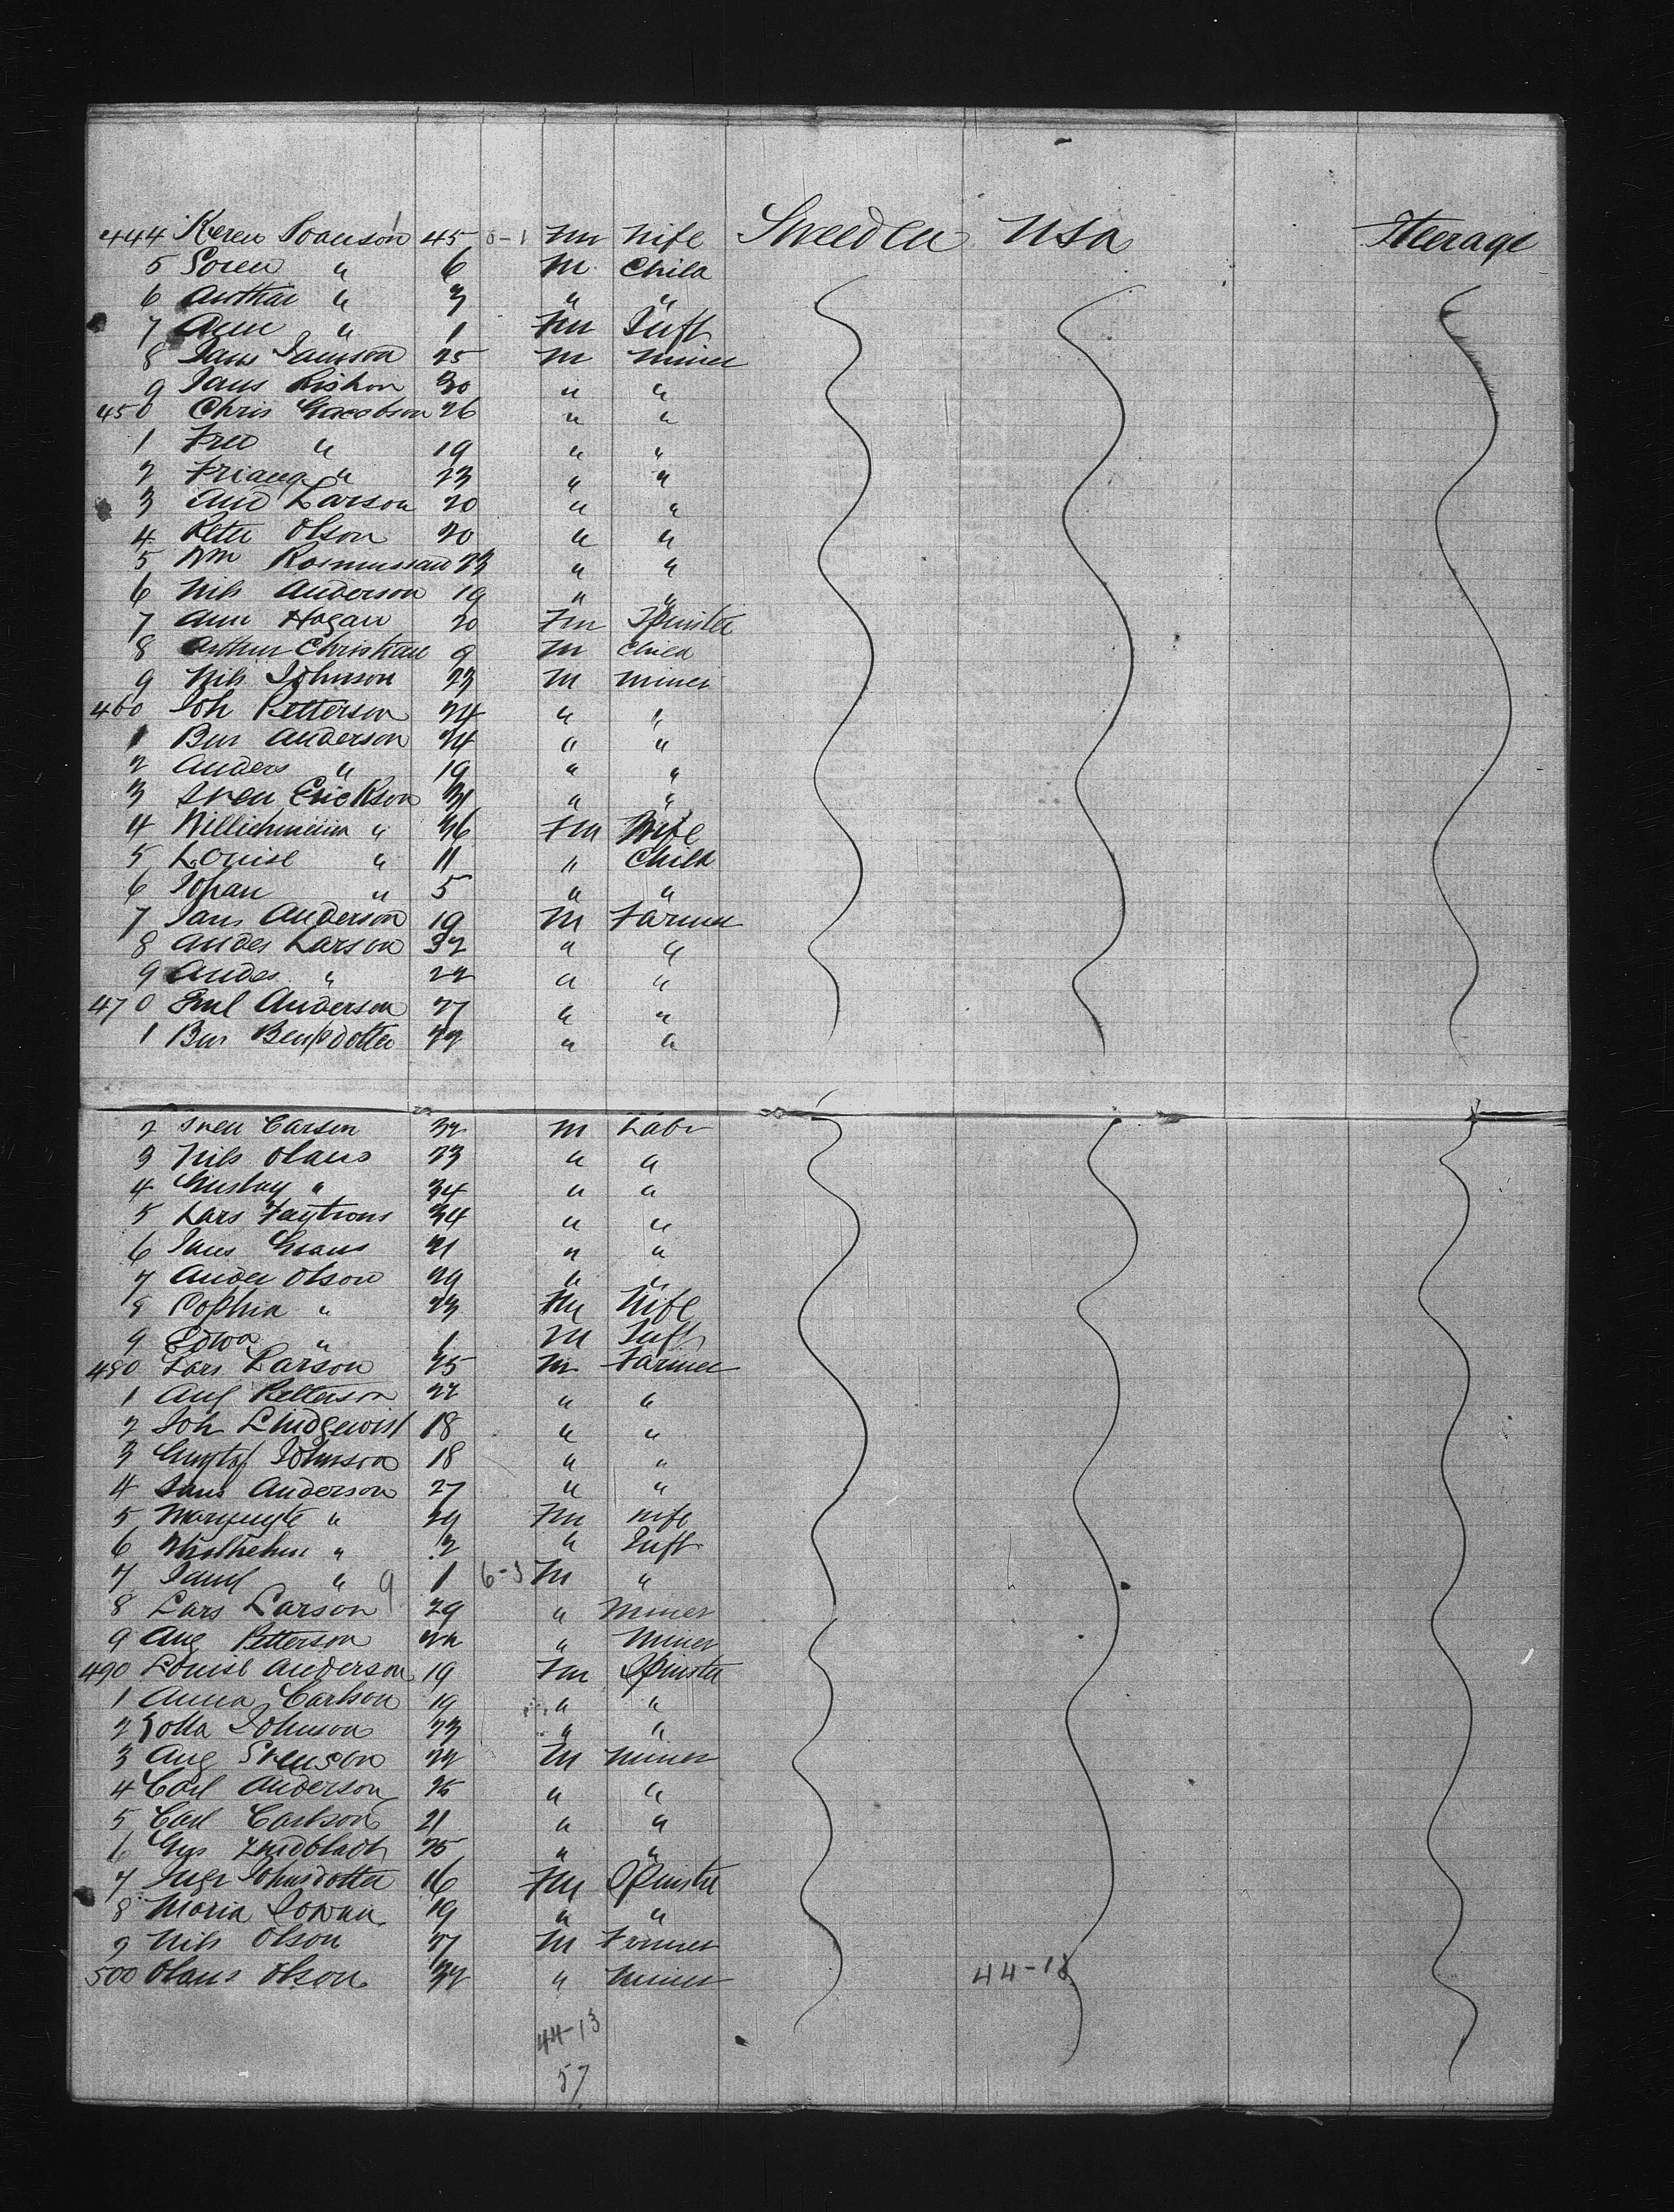 444 Keren Swanson 45 0-1 Fm Wife Sweden USA Steerage
5 Soren " 6 M Child
6 Arthur " 3 " "
7 Ann " 1 Fm Inft
8 Jans Jamson 25 M Miner
9 Jans 30 " "
450 Chris Gacobson 26 " "
1 Fred " 19 " "
2 " 23 " "
3 And Larson 20 " "
4 Peter Olson 20 " "
5 Wm Rasmussan 23 " "
6 Nils Anderson 19 " "
7 Ann Hogan 20 Fm Spinster
8 Arthur Christian 9 M Child
9 Nils Johnson 23 M Miner
460 Joh Petterson 24 " "
1 Ben Anderson 24 " "
2 Anders " 19 " "
3 Sven Erickson 31 " "
4 " 36 Fm Wife
5 Louise " 11 " Child
6 Johan " 5 " "
7 Jans Anderson 19 M Farmer
8 Andes Larson 32 " "
9 Andes " 22 " "
470 Emil Anderson 27 " "
1 Ben 22 " "
2 Sven Carson 32 M Labr
3 Nils Olaus 23 " "
4 Gustav " 34 " "
5 Lars 34 " "
6 Jans 21 " "
7 Ander Olson 29 " "
8 Sophia " 23 Fm Wife
9 Edwa " 1 M Inft
480 Lars Larson 25 M Farmer
1 Aug Petterson 22 " "
2 Joh Lindgewist 18 " "
3 Gustaf Johnson 18 " "
4 Jans Anderson 27 " "
5 " 29 Fm Wife
6 Wilhelm " 2 " Inft
7 " 9 1 6-3 M "
8 Lars Larson 29 " Miner
9 Aug Petterson 22 " Miner
490 Louise Anderson 19 Fm Spinster
1 Anna Carlson 19 " "
2 Lotta Johnson 23 " "
3 Aug Svenson 22 M Miner
4 Carl Anderson 25 " "
5 Carl Carlson 21 " "
6 Gus Lindbladh 25 " "
7 Inga Johnsdotter 16 Fm Spinster
8 Maria 19 " "
9 Nils Olson 27 M Farmer
500 Olaus Olson 32 " Miner 44-13
44-13
57